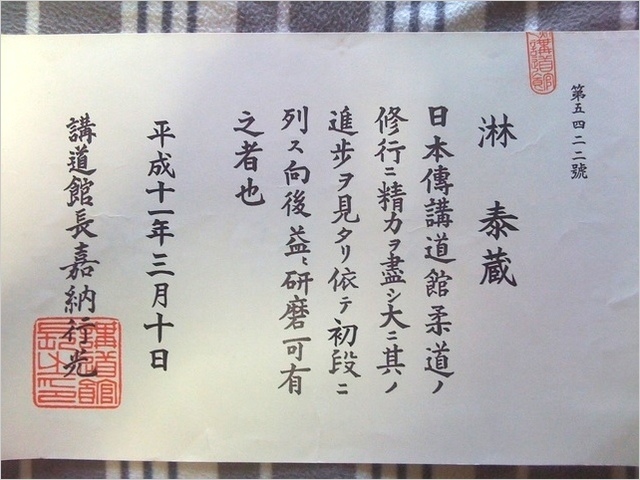 講道館
第五四二二號
淋 泰蔵
日本傳講道館柔道ノ
修行ニ精力ヲ盡シ大ニ其ノ
進歩ヲ見タリ依テ初段ニ
列ス向後益〻研磨可有
之者也
平成十一年三月十日
講道館長嘉納行光
講道館長之印